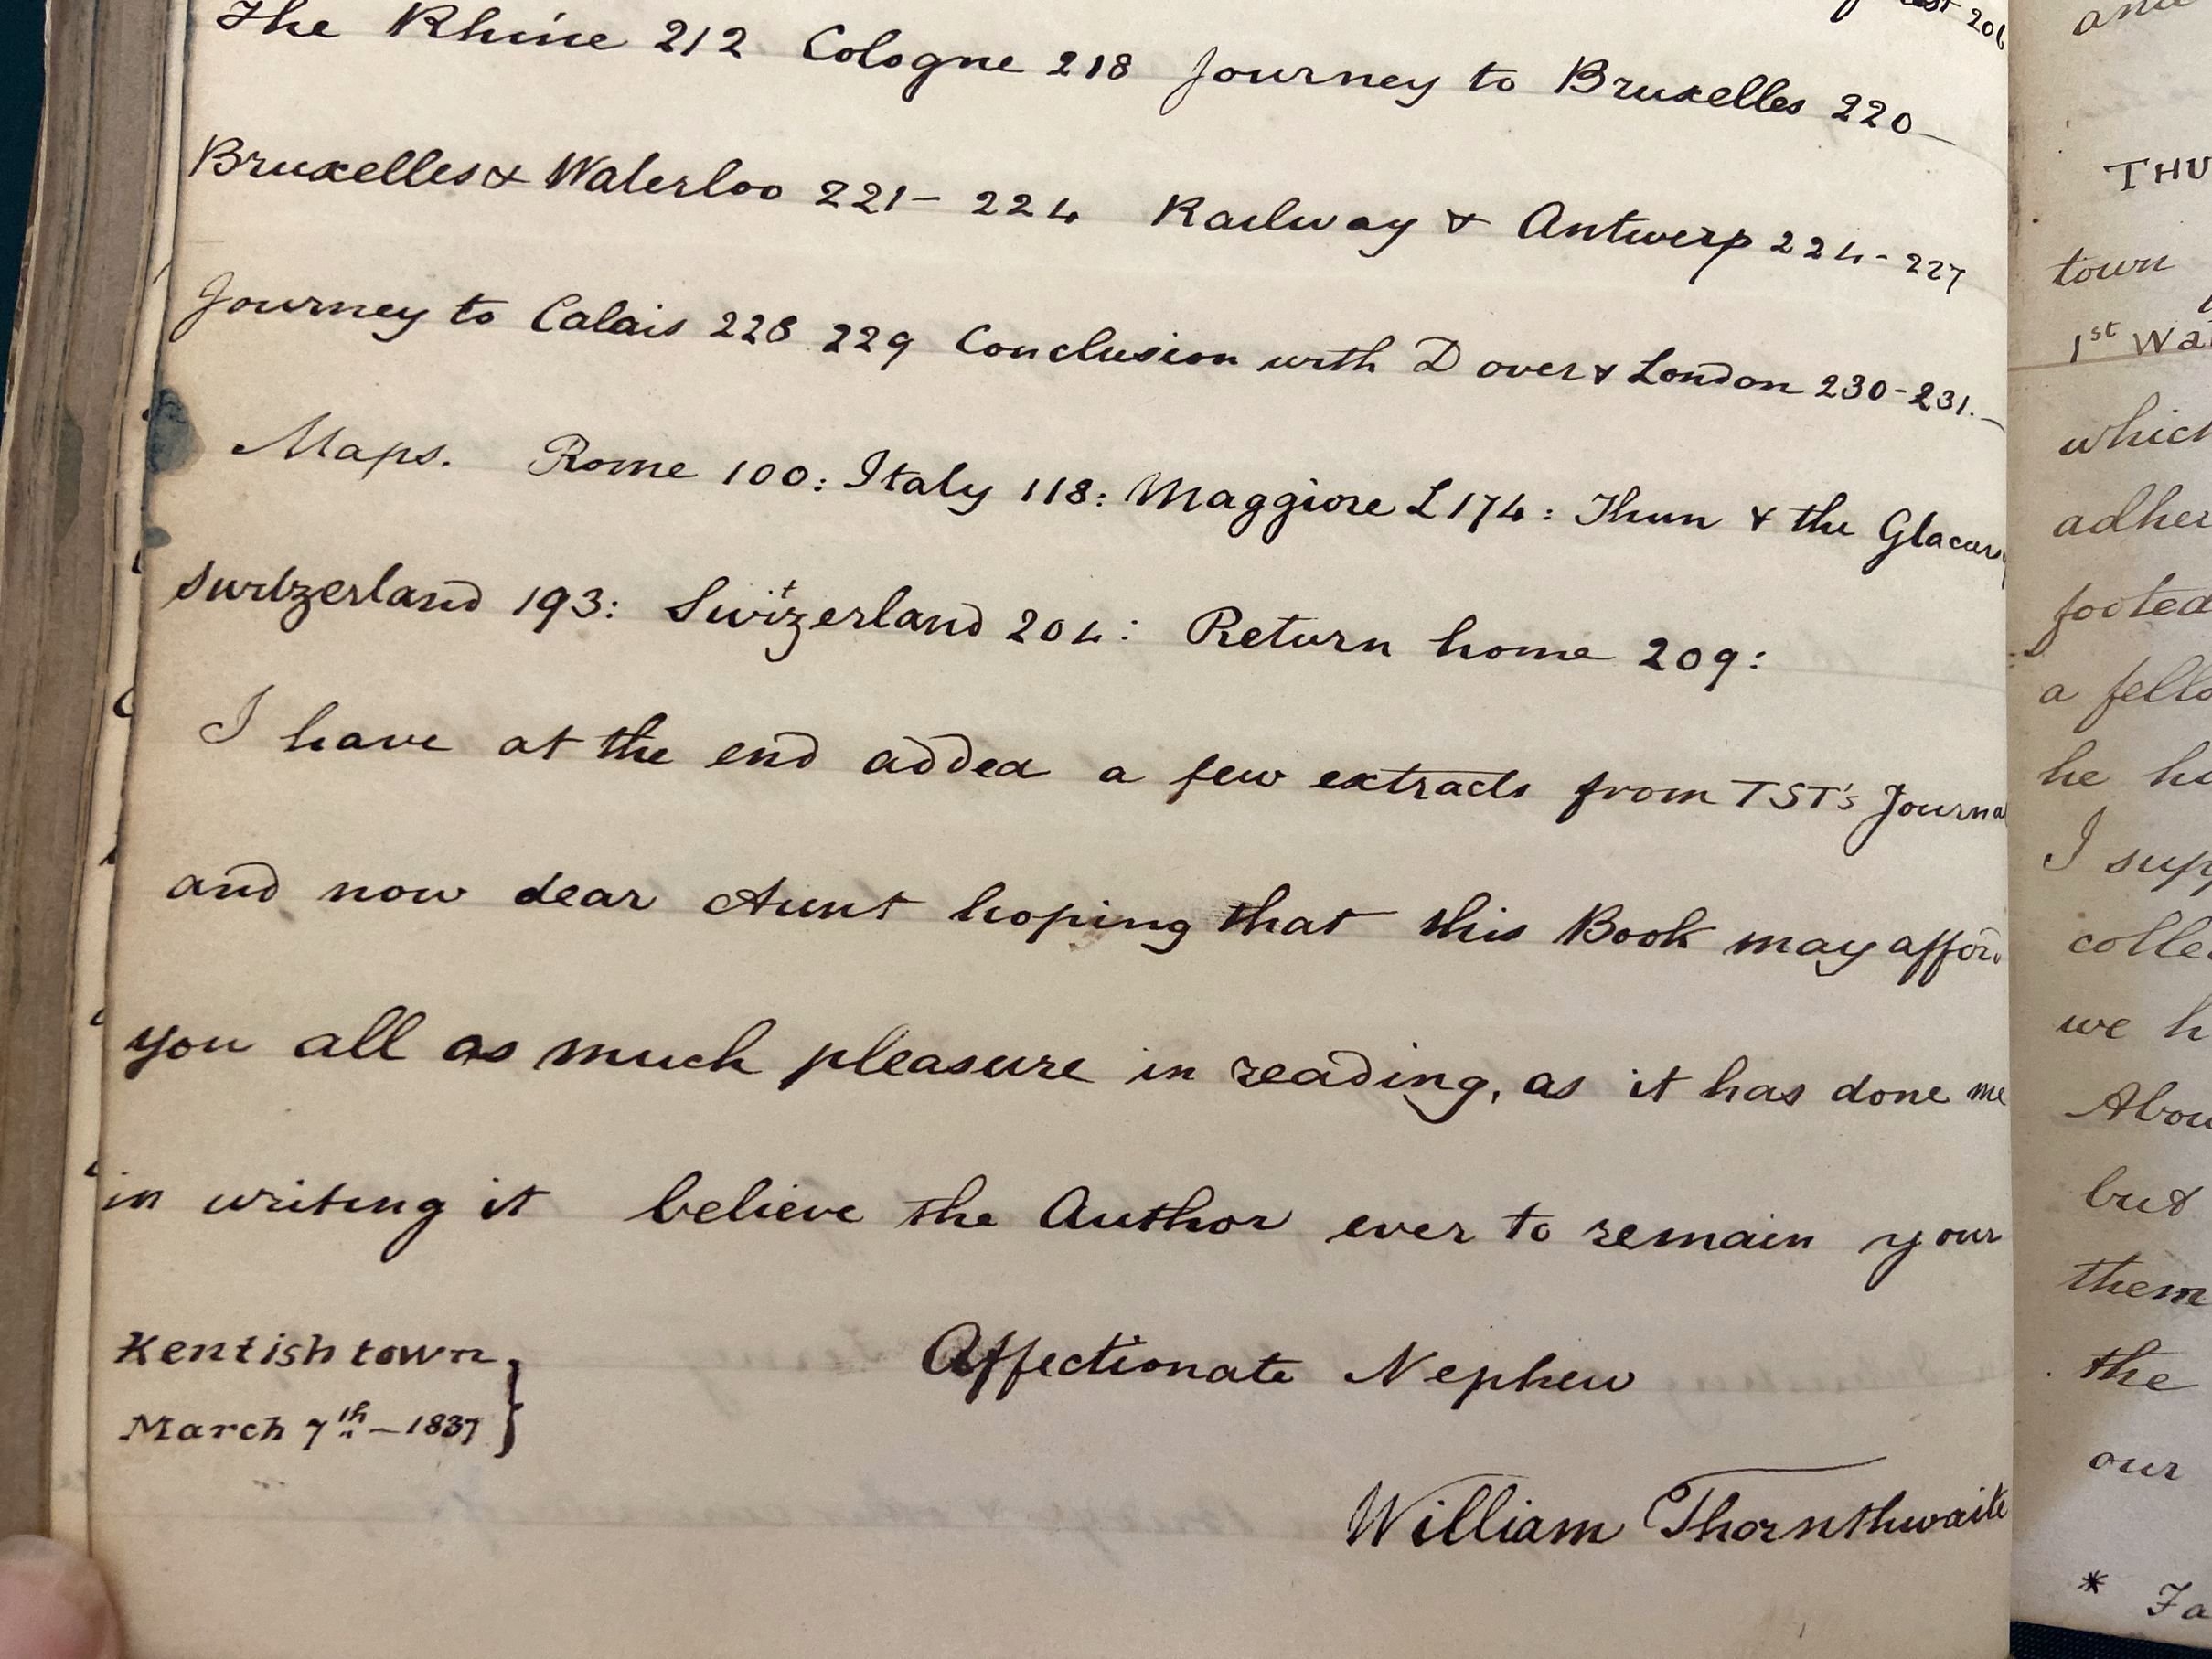 The Rhine 212 Cologne 218 Journey to Bruxelles 220—
Bruxelles & Waterloo 221 – 224 Railway & Antwerp 224 - 227
Journey to Calais 228 229 Conclusion with Dover & London 230 - 231.—
Maps. Rome 100: Italy 118: Maggiore L 174: Thun & the
Switzerland 193: Switzerland 204: Return home 209:
I have at the end added a few extracts from TST's Journa
and now dear Aunt hoping that this Book may afford
you all as much pleasure in reading, as it has done me
in writing it believe the Author ever to remain your
Affectionate Nephew
Kentish town,
March 7th – 1837
William Thornthwaite
and
THU
town
1st Wa
which
adher
footed
a fello
he ha
I supp
colle
we h
Abou
but
them
the
our
* Fa